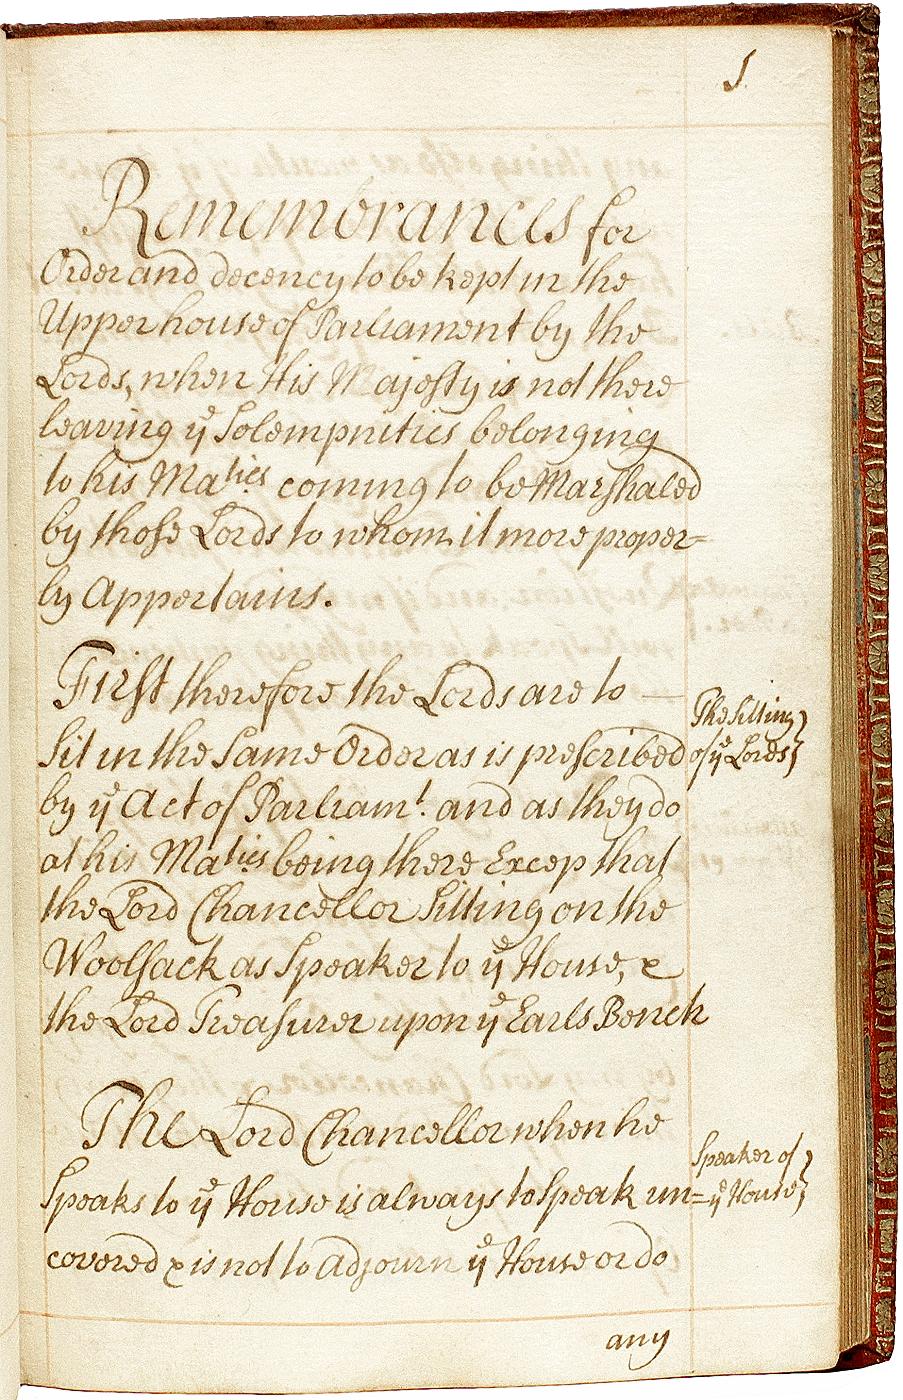 1
Remembrances for
Order and decency to be kept in the
Upper house of Parliament by the
Lords, when His Majesty is not there
leaving yͤ Solempnities belonging
to his Maᵗⁱᵉˢ coming to be Marshaled
by those Lords to whom it more proper=
ly Appertains.
First therefore the Lords are to —
The Sitting
Sit in the Same Order as is prescribed
of yͤ Lords
by yͤ Act of Parliamᵗ. and as they do
at his Maᵗⁱᵉˢ being there Excep that
the Lord Chancellor Sitting on the
Woolsack as Speaker to yͤ House, &
the Lord Treasurer upon yͤ Earls Bench
The Lord Chancellor when he
Speaker of
Speaks to yͤ House is always to Speak un=
yͤ House
covered & is not to Adjourn yͤ House or do
any